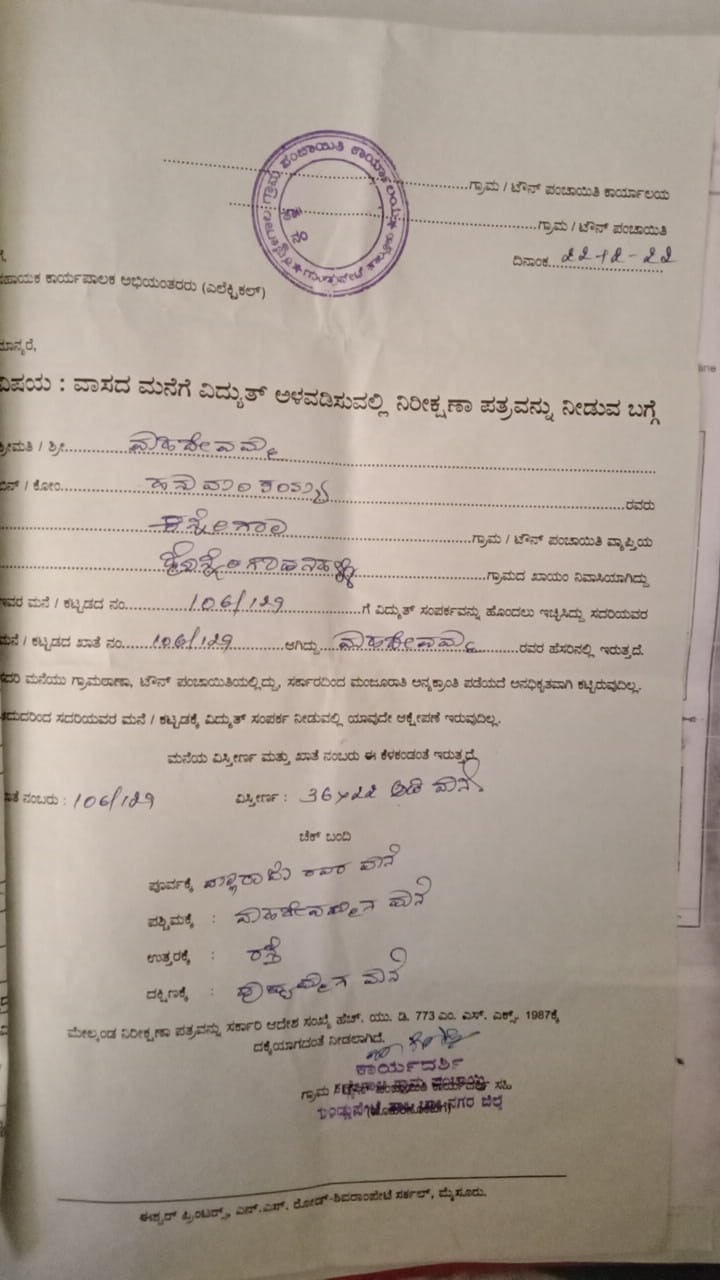 ಗ್ರಾಮ ಪಂಚಾಯಿತಿ ಕಾರ್ಯಾಲಯ
ಗುಂಡ್ಲುಪೇಟೆ
....................ಗ್ರಾಮ / ಟೌನ್ ಪಂಚಾಯಿತಿ ಕಾರ್ಯಾಲಯ
....................ಗ್ರಾಮ / ಟೌನ್ ಪಂಚಾಯಿತಿ
ದಿನಾಂಕ
ಗೆ,
ಸಹಾಯಕ ಕಾರ್ಯಪಾಲಕ ಅಭಿಯಂತರರು (ಎಲೆಕ್ಟ್ರಿಕಲ್)
ಮಾನ್ಯರೆ,
ವಿಷಯ : ವಾಸದ ಮನೆಗೆ ವಿದ್ಯುತ್ ಅಳವಡಿಸುವಲ್ಲಿ ನಿರೀಕ್ಷಣಾ ಪತ್ರವನ್ನು ನೀಡುವ ಬಗ್ಗೆ
ಶ್ರೀಮತಿ / ಶ್ರೀ... ಮಹದೇವಮ್ಮ
ಬಿನ್ / ಕೋಂ... ರವರು
...ಗ್ರಾಮ / ಟೌನ್ ಪಂಚಾಯಿತಿ ವ್ಯಾಪ್ತಿಯ
...ಗ್ರಾಮದ ಖಾಯಂ ನಿವಾಸಿಯಾಗಿದ್ದು
ಇವರ ಮನೆ / ಕಟ್ಟಡದ ನಂ... 106/129 ...ಗೆ ವಿದ್ಯುತ್ ಸಂಪರ್ಕವನ್ನು ಹೊಂದಲು ಇಚ್ಛಿಸಿದ್ದು ಸದರಿಯವರ
ಮನೆ / ಕಟ್ಟಡದ ಖಾತೆ ನಂ... 106/129 ...ಆಗಿದ್ದು... ಮಹದೇವಮ್ಮ ...ರವರ ಹೆಸರಿನಲ್ಲಿ ಇರುತ್ತದೆ.
ಸದರಿ ಮನೆಯು ಗ್ರಾಮಠಾಣಾ, ಟೌನ್ ಪಂಚಾಯಿತಿಯಲ್ಲಿದ್ದು, ಸರ್ಕಾರದಿಂದ ಮಂಜೂರಾತಿ ಅನ್ಯಕ್ರಾಂತಿ ಪಡೆಯದೆ ಅನಧಿಕೃತವಾಗಿ ಕಟ್ಟಿರುವುದಿಲ್ಲ.
ಆದುದರಿಂದ ಸದರಿಯವರ ಮನೆ / ಕಟ್ಟಡಕ್ಕೆ ವಿದ್ಯುತ್ ಸಂಪರ್ಕ ನೀಡುವಲ್ಲಿ ಯಾವುದೇ ಆಕ್ಷೇಪಣೆ ಇರುವುದಿಲ್ಲ.
ಮನೆಯ ವಿಸ್ತೀರ್ಣ ಮತ್ತು ಖಾತೆ ನಂಬರು ಈ ಕೆಳಕಂಡಂತೆ ಇರುತ್ತದೆ
ಖಾತೆ ನಂಬರು : 106/129 ವಿಸ್ತೀರ್ಣ : 36×22 ಅಡಿ ಮನೆ
ಚೆಕ್ ಬಂದಿ
ಪೂರ್ವಕ್ಕೆ ರವರ ಮನೆ
ಪಶ್ಚಿಮಕ್ಕೆ : ಮನೆ
ಉತ್ತರಕ್ಕೆ : ರಸ್ತೆ
ದಕ್ಷಿಣಕ್ಕೆ : ಮನೆ
ಮೇಲ್ಕಂಡ ನಿರೀಕ್ಷಣಾ ಪತ್ರವನ್ನು ಸರ್ಕಾರಿ ಆದೇಶ ಸಂಖ್ಯೆ ಹೆಚ್. ಯು. ಡಿ. 773 ಎಂ. ಎಸ್. ಎಕ್ಸ್. 1987ಕ್ಕೆ
ದಕ್ಕೆಯಾಗದಂತೆ ನೀಡಲಾಗಿದೆ.
ಕಾರ್ಯದರ್ಶಿ
ಗ್ರಾಮ / ಟೌನ್ ಪಂಚಾಯಿತಿ ಕಾರ್ಯದರ್ಶಿ ಸಹಿ
ಈಶ್ವರ್ ಪ್ರಿಂಟರ್ಸ್, ಎನ್.ಎಸ್. ರೋಡ್-ಶಿವರಾಂಪೇಟೆ ಸರ್ಕಲ್, ಮೈಸೂರು.